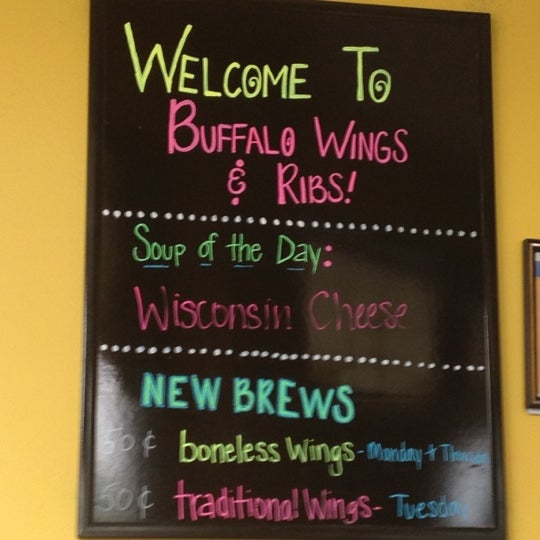 WELCOME TO
BUFFALO WINGS
& RIBS!
Soup of the Day:
Wisconsin Cheese
NEW BREWS
50¢ boneless Wings - Monday + Thursday
50¢ traditional Wings - Tuesday